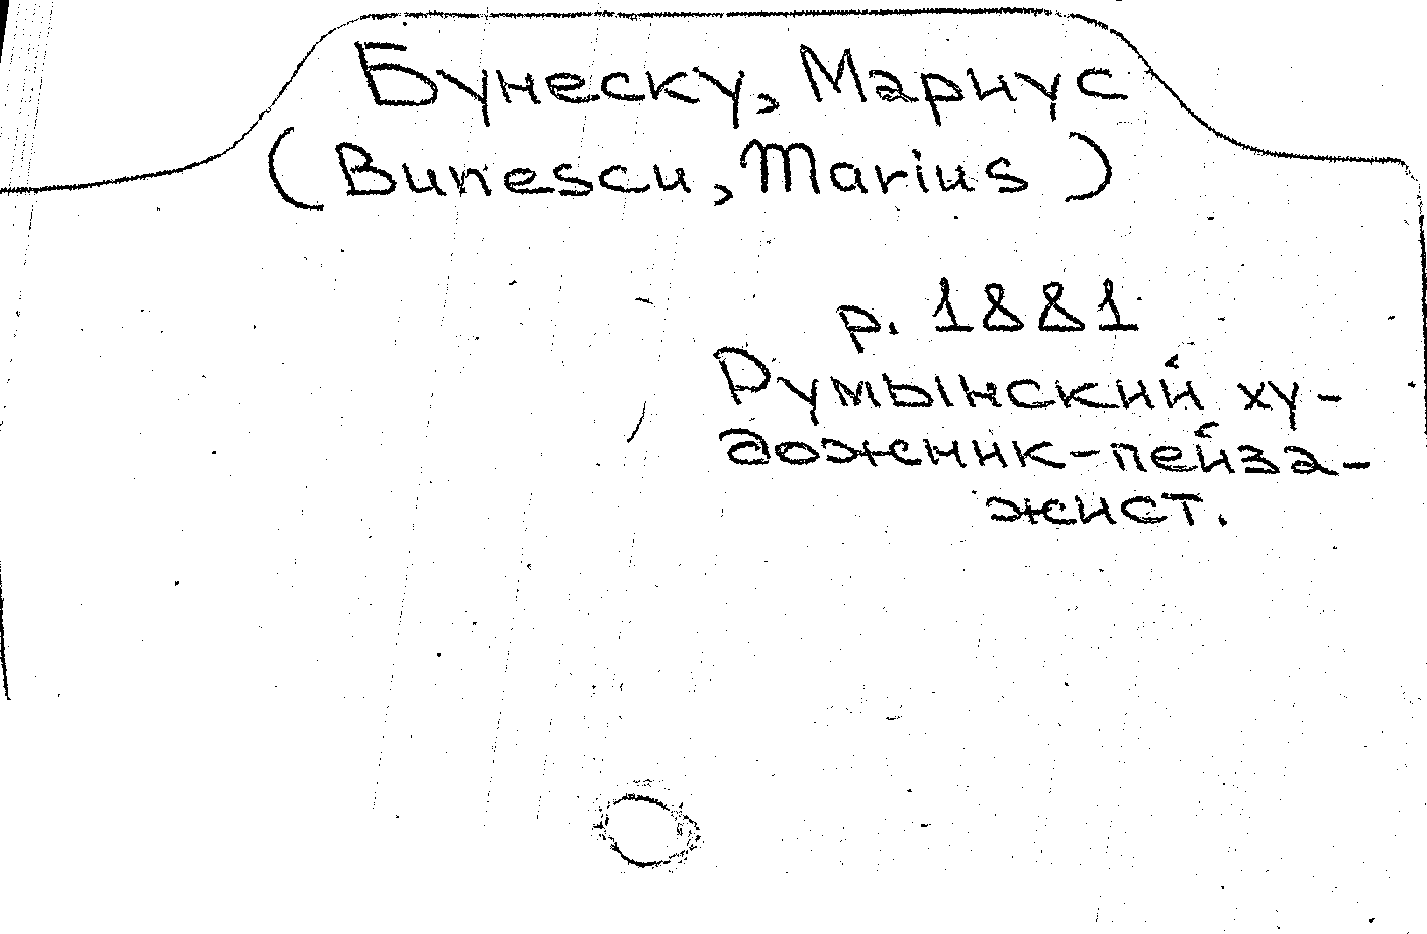 Бунеску, Мариус
(Bunescu, Marius)
р. 1881
Румынский ху-
дожник-пейза-
жист.